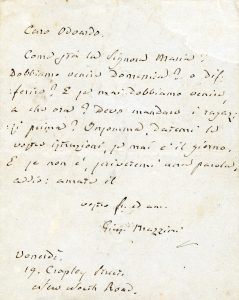 Caro Odoardo.
Come sta la Signora Maria?
Dobbiamo venire domenica? o dif-
ferire? E se mai dobbiamo venire,
a che ora? Devo mandare i ragaz-
zi prima? Insomma, datemi le
vostre istruzioni, se mai è il giorno.
E se non è, scrivetemi una parola,
amate il
vostro
Gius. Mazzini
Venerdì.
19. Cropley Street.
New North Road.